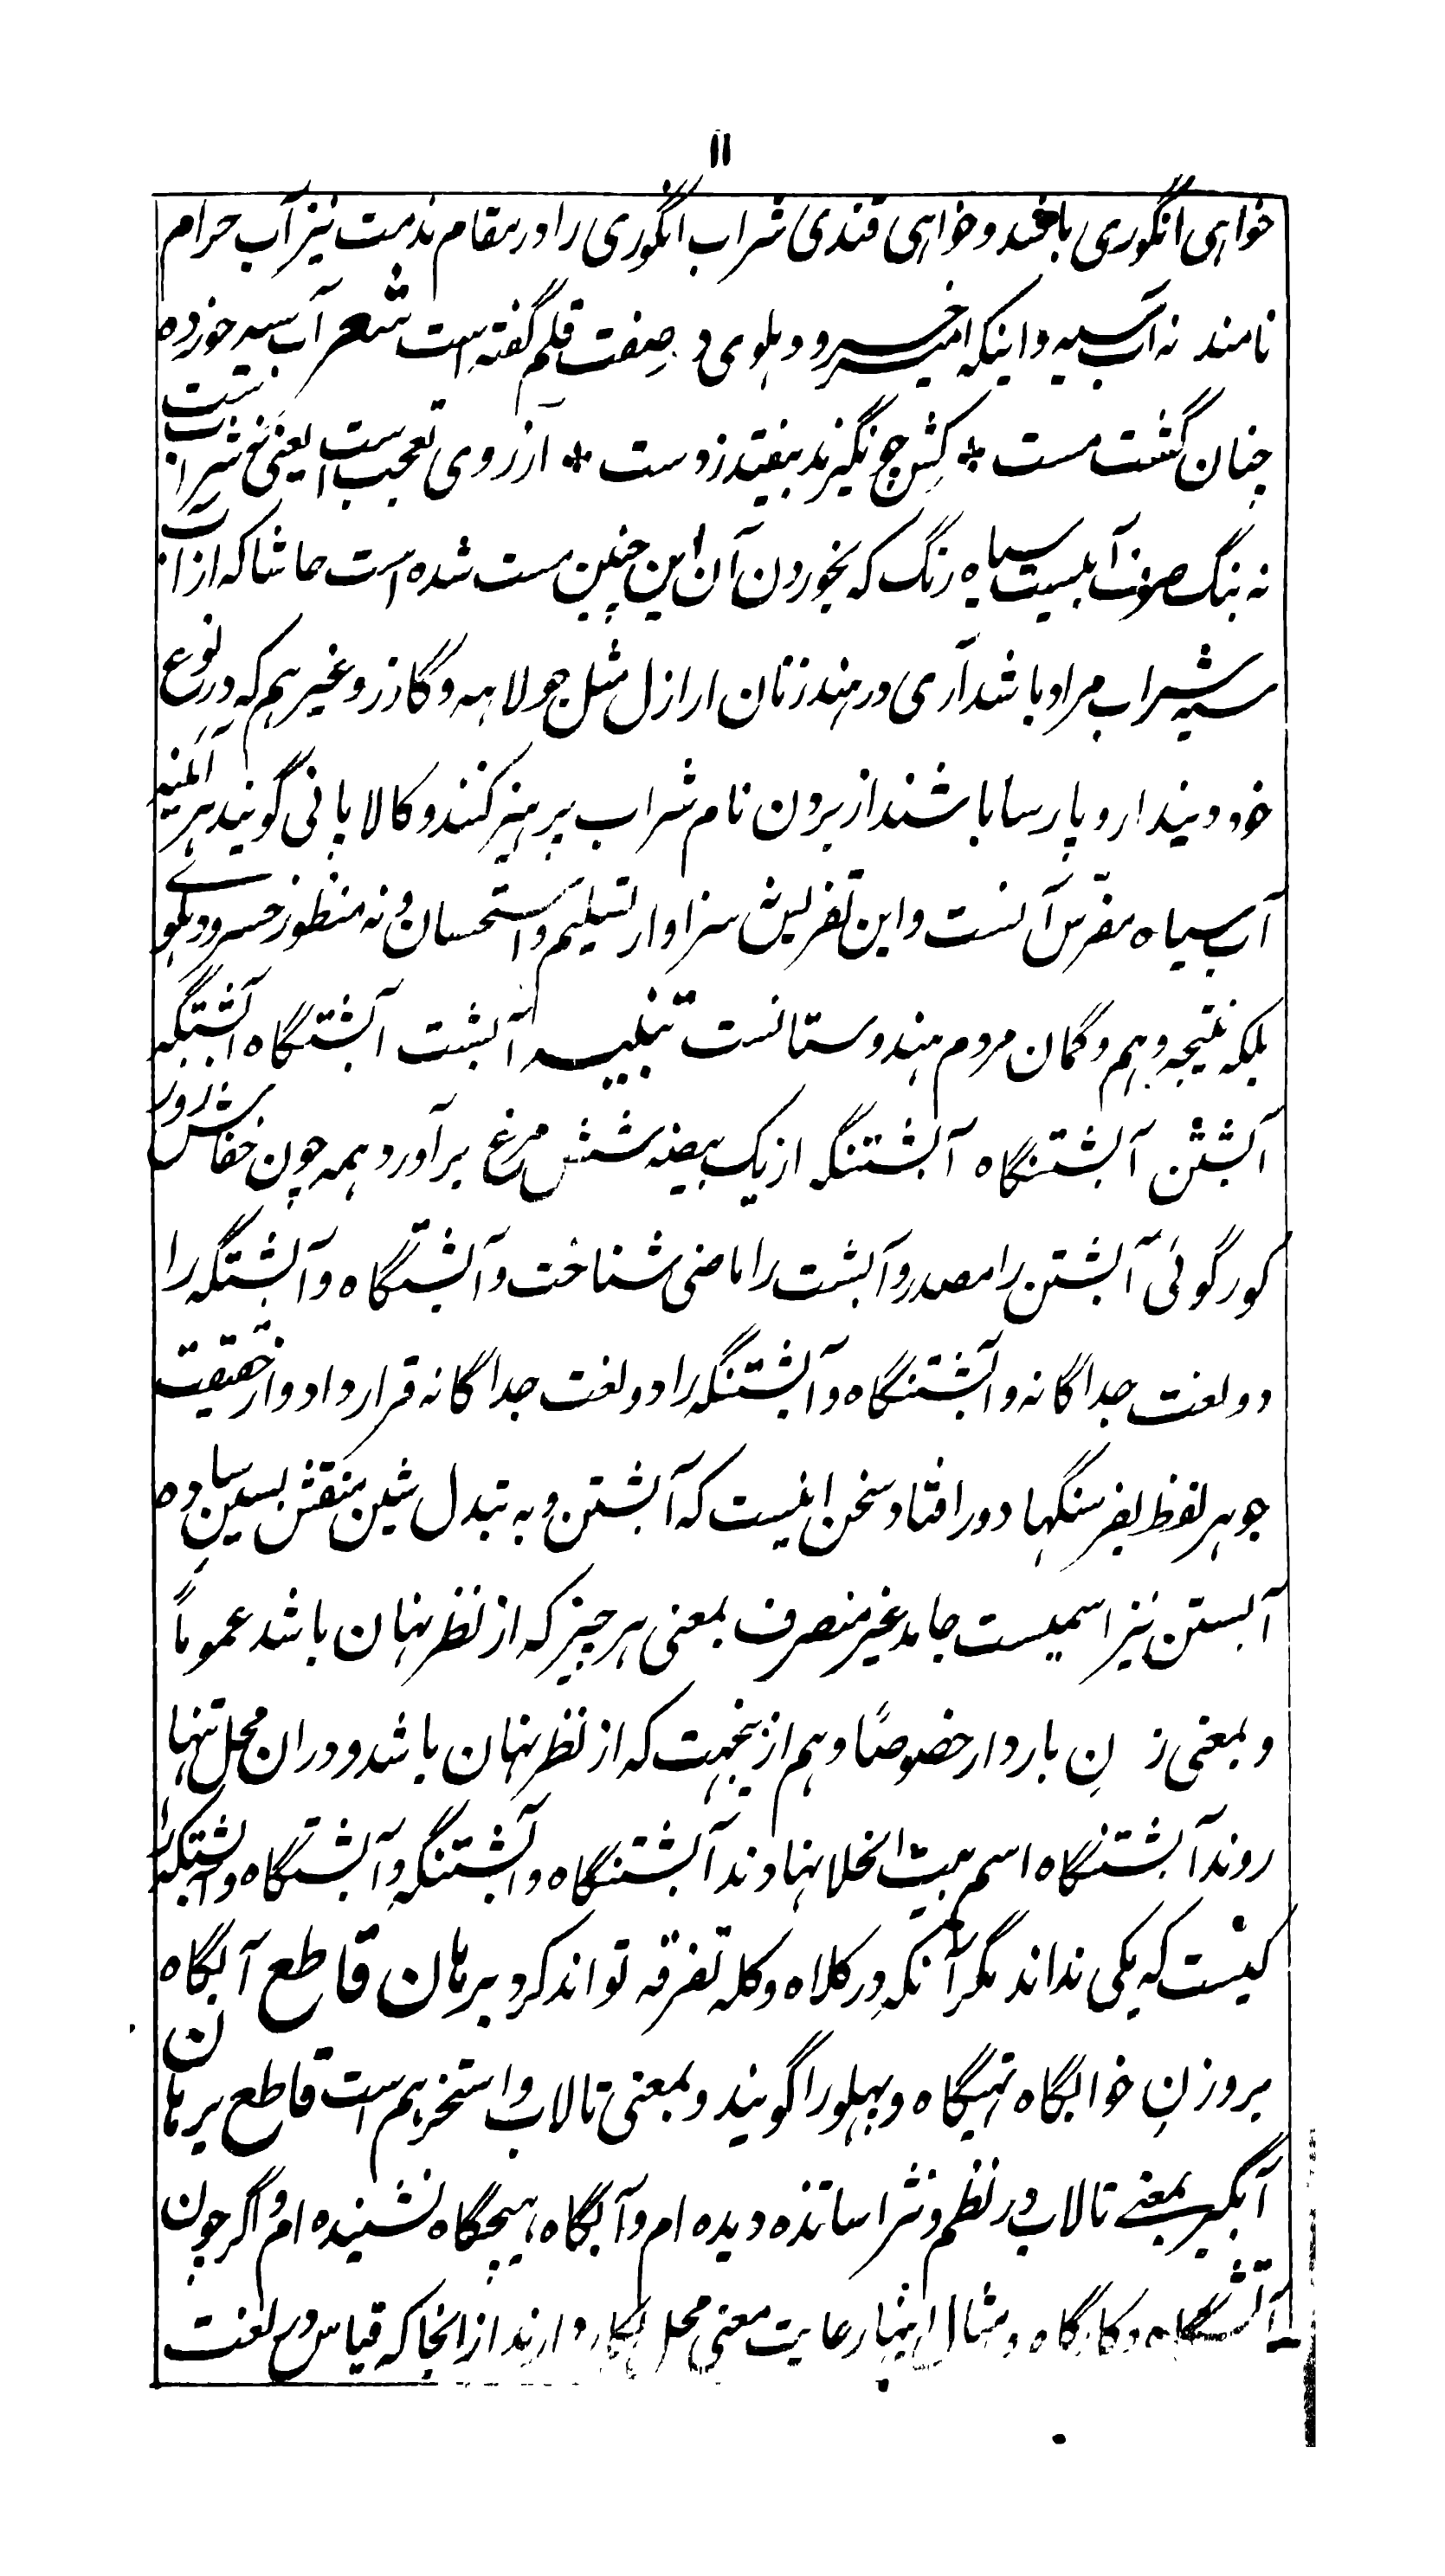 ۱۱
خواہی انگوری باشد و خواہی قندی شراب انگوری را در مقام مذمت نیز آب حرام
نامند نہ آب سیہ و اینکہ امیر خسرو دہلوی در صفت قلم گفتہ است شعر آب سیہ خوردہ
چنان گشت مست * کش چو نگیرند بیفتد ز دست * از روی تعجب است یعنی نہ شراب است
نہ بنگ صرف آبیست سیاہ رنگ کہ بخوردن آن این چنین مست شدہ است حاشا کہ از آب
سیہ شراب مراد باشد آری در ہند زنان ارازل مثل جولاہہ و گازر و غیرہم کہ در نوع
خود دیندار و پارسا باشند از بردن نام شراب پرہیز کنند و کالا پانی گویند ہر آئنہ
آب سیاہ مفرس آنست و این تفریس سزاوار تسلیم و استحسان و نہ منظور خسرو دہلوے
بلکہ نتیجہ وہم و گمان مردم ہندوستانست تنبیہ آبشت آبشتگاہ آبشتگہ
آبشتن آبشتنگاہ آبشتنگہ از یک بیضہ شش مرغ برآورد ہمہ چون خفاش روز
کور گوئی آبشتن را مصدر و آبشت را ماضی شناخت و آبشتگاہ و آبشتگہ را
دو لغت جداگانہ و آبشتنگاہ و آبشتنگہ را دو لغت جداگانہ قرار داد و از حقیقت
جوہر لفظ بفرسنگہا دور افتاد سخن اینست کہ آبشتن و بہ تبدل شین منقش بسین سادہ
آبستن نیز اسمیست جامد غیر منصرف بمعنی ہر چیز کہ از نظر نہان باشد عموماً
و بمعنی زن باردار خصوصاً و ہم ازینجہت کہ از نظر نہان باشد و دران محل تنہا
روند آبشتنگاہ اسم بیت الخلا نہادند آبشتنگاہ و آبشتنگہ و آبشتگاہ و آبشتگہ را
کیست کہ یکی نداند مگر آنکہ در کلاہ و کلہ تفرقہ تواند کرد برہان قاطع آبگاہ
بروزن خوابگاہ تہیگاہ و پہلو را گویند و بمعنی تالاب و استخر ہم است قاطع برہان
آبگیر بمعنے تالاب در نظم و نثر اساتذہ دیدہ ام و آبگاہ ہیچگاہ نشنیدہ ام و اگر چون
آتشگاہ و کارگاہ و مثال اینہا رعایت معنی محل بکار دارند از انجا کہ قیاس در لغت